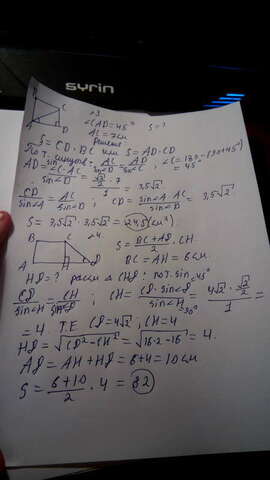 syrin
B
C
A
D
∠CAD = 45°
S - ?
AC = 7см
Решение
S = CD · BC или S = AD · CD
По т. синусов
AC/sin∠D = AD/sin∠C ; ∠C = 180 - (90+45°) = 45°
AD = sin∠C · AC / sin∠D = √2/2 · 7 / 1 = 3,5√2
CD/sin∠A = AC/sin∠D ; CD = sin∠A · AC / sin∠D = 3,5√2
S = 3,5√2 · 3,5√2 = 24,5 (см²)
B
C
A
H
D
S = BC + AD / 2 · CH
BC = AH = 6см
HD = ? рассм Δ CHD: по т. sin
CD/sin∠H = CH/sin∠D ; CH = CD · sin∠D / sin∠H = 4√2 · √2/2 / 1 =
= 4 . Т.Е CD = 4√2 ; CH = 4
HD = √CD² - CH² = √16·2 - 16 = 4.
AD = AH + HD = 6 + 4 = 10 см
S = 6 + 10 / 2 · 4 = 32